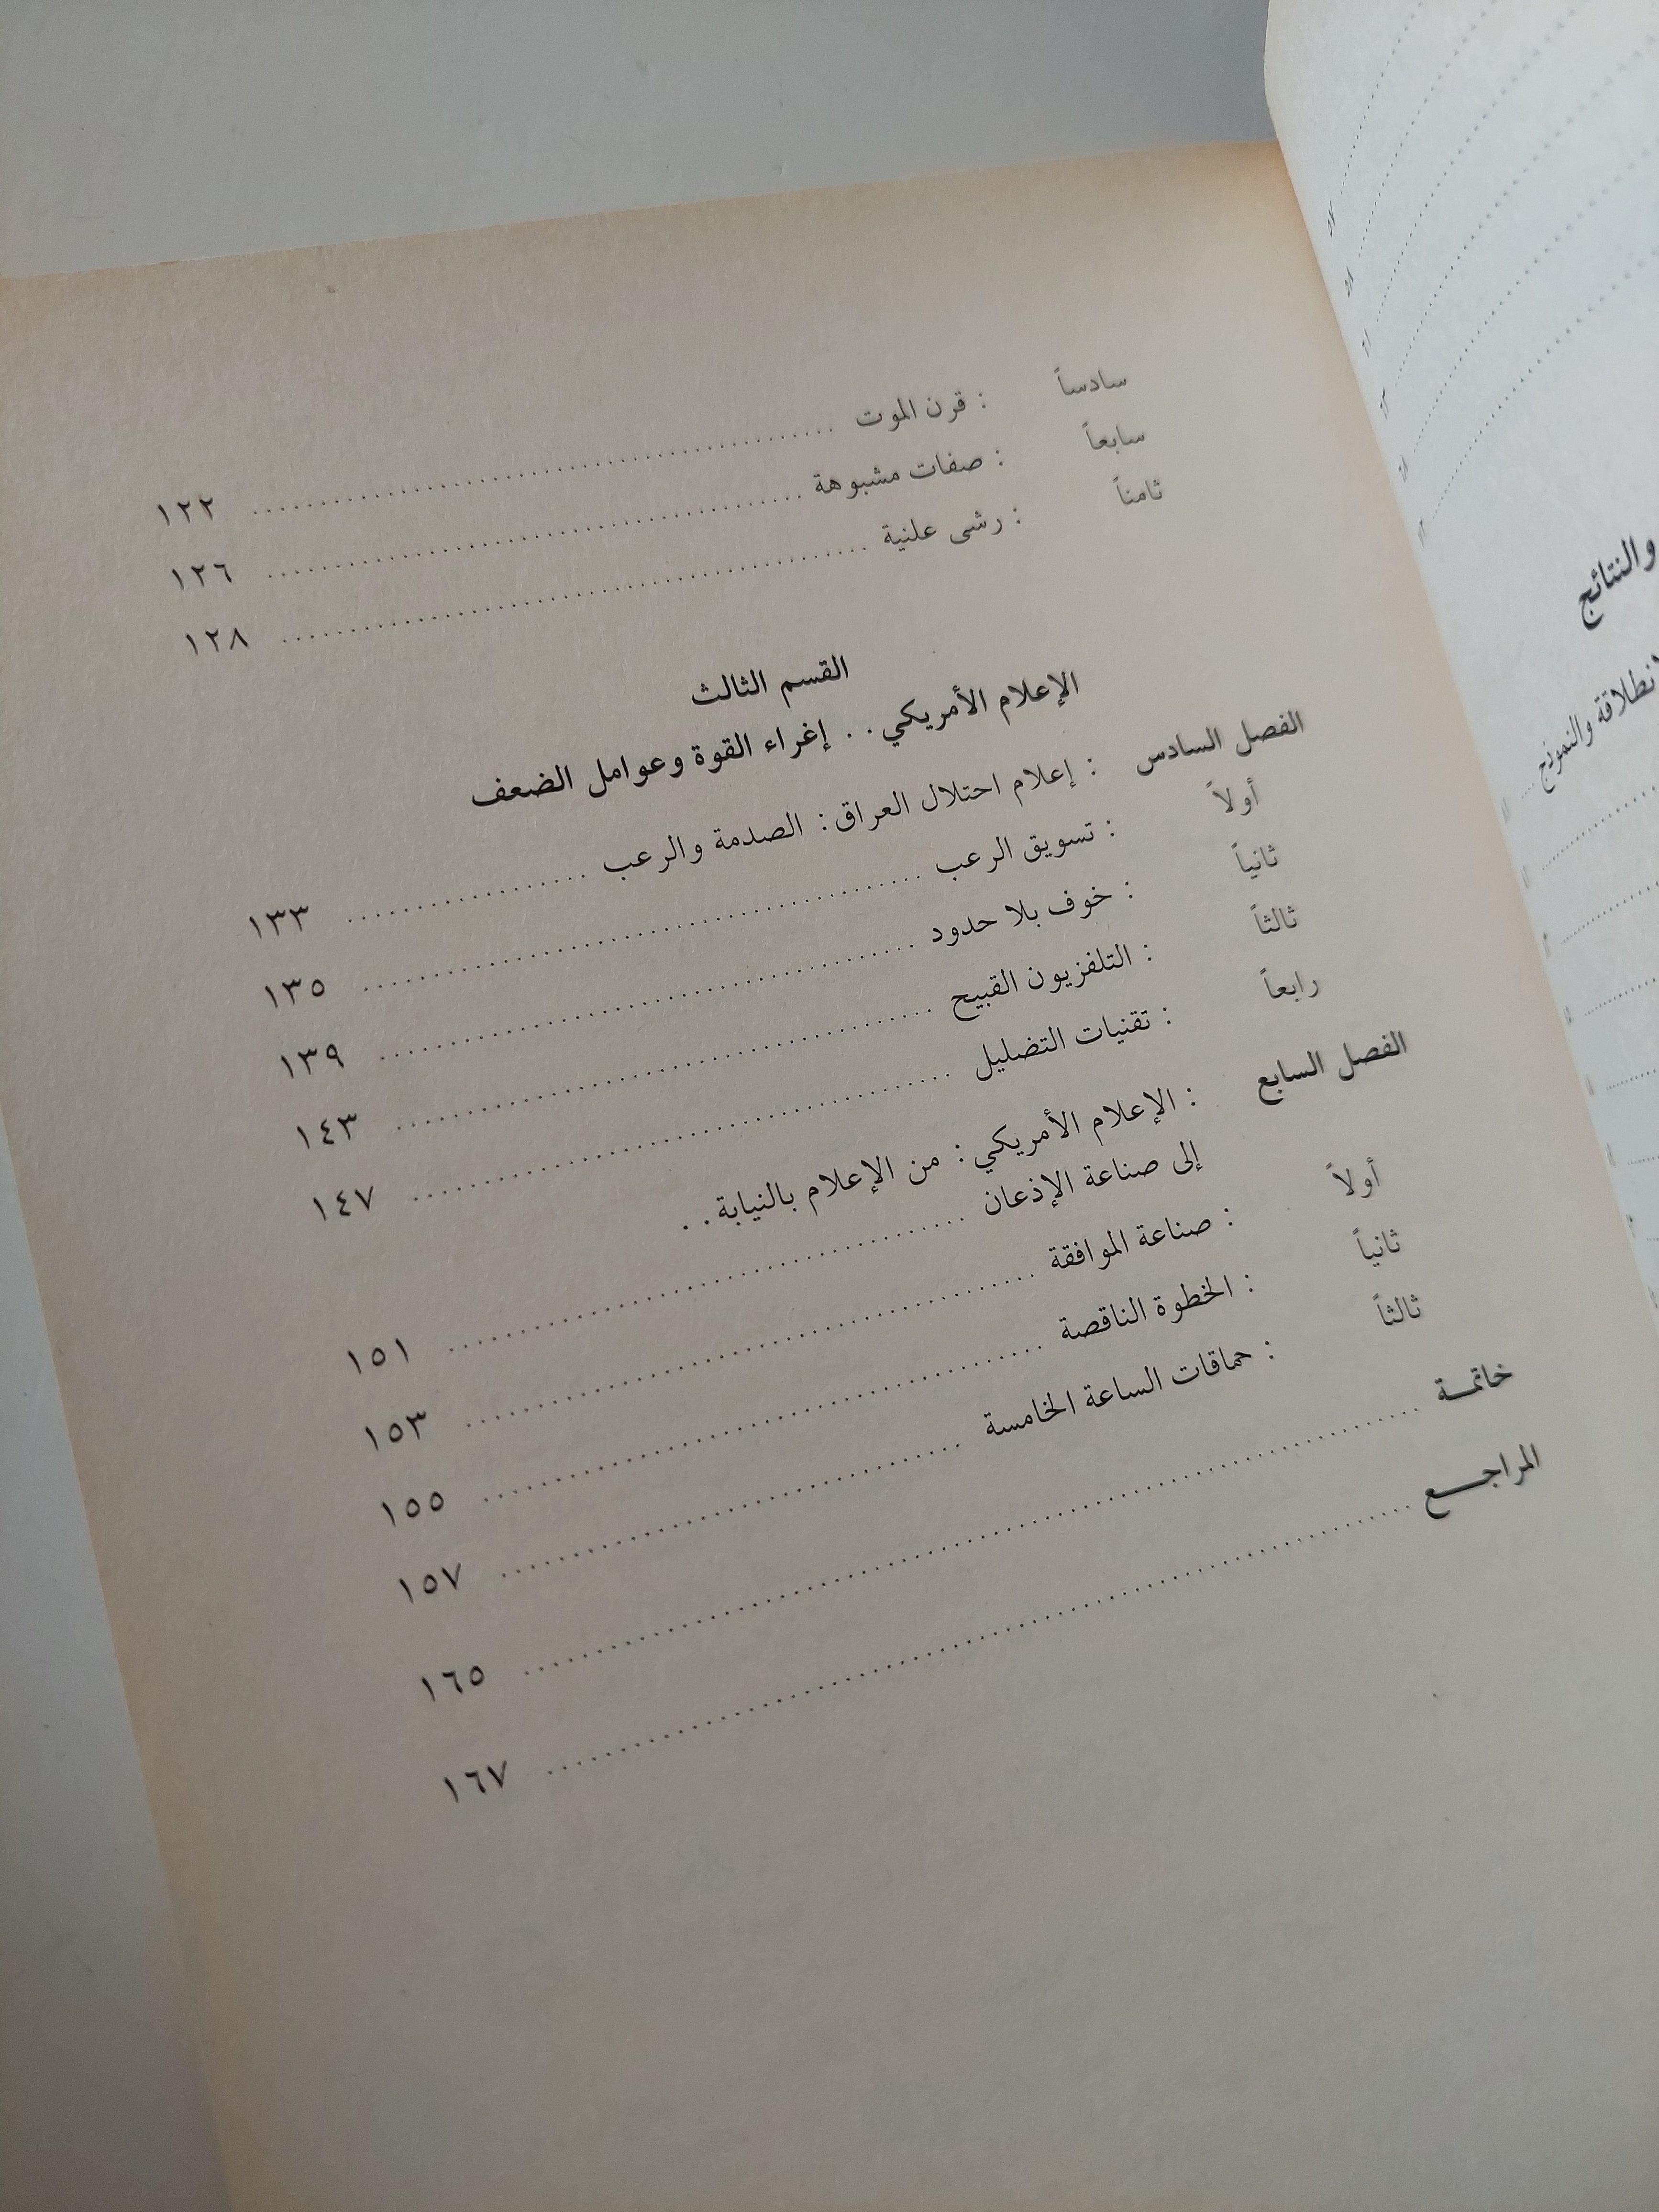 سادساً : قرن الموت ........ ١٢٢
سابعاً : صفات مشبوهة ........ ١٢٦
ثامناً : رشى علنية ........ ١٢٨
القسم الثالث
الإعلام الأمريكي .. إغراء القوة وعوامل الضعف
الفصل السادس : إعلام احتلال العراق : الصدمة والرعب ........ ١٣٣
أولاً : تسويق الرعب ........ ١٣٥
ثانياً : خوف بلا حدود ........ ١٣٩
ثالثاً : التلفزيون القبيح ........ ١٤٣
رابعاً : تقنيات التضليل ........ ١٤٧
الفصل السابع : الإعلام الأمريكي : من الإعلام بالنيابة ..
إلى صناعة الإذعان ........ ١٥١
أولاً : صناعة الموافقة ........ ١٥٣
ثانياً : الخطوة الناقصة ........ ١٥٥
ثالثاً : حماقات الساعة الخامسة ........ ١٥٧
خاتمـة ........ ١٦٥
المراجـع ........ ١٦٧
والنتائج
والنموذج